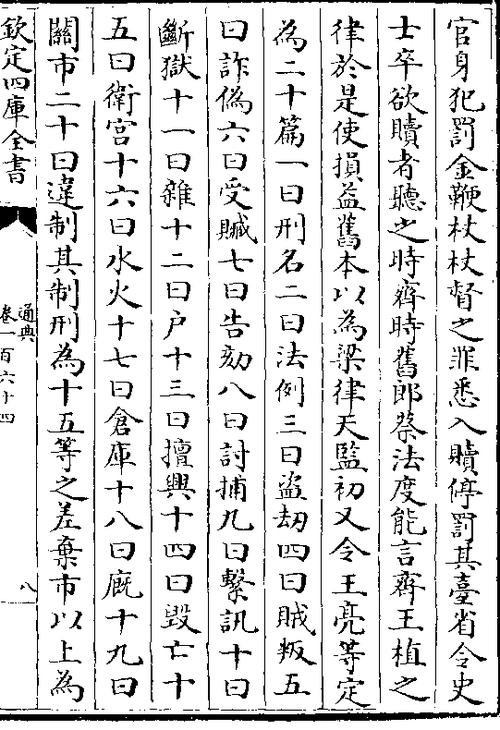 官身犯罰金鞭杖杖督之罪悉入贖停罰其臺省令史
士卒欲贖者聽之時齊時舊郎蔡法度能言齊王植之
律於是使損益舊本以為梁律天監初又令王亮等定
為二十篇一曰刑名二曰法例三曰盜劫四曰賊叛五
曰詐偽六曰受賕七曰告劾八曰討捕九曰繫訊十曰
斷獄十一曰雜十二曰户十三曰擅興十四曰毀亡十
五曰衛宫十六曰水火十七曰倉庫十八曰廐十九曰
關市二十曰違制其制刑為十五等之差棄市以上為
欽定四庫全書
通典
卷一百六十四
八